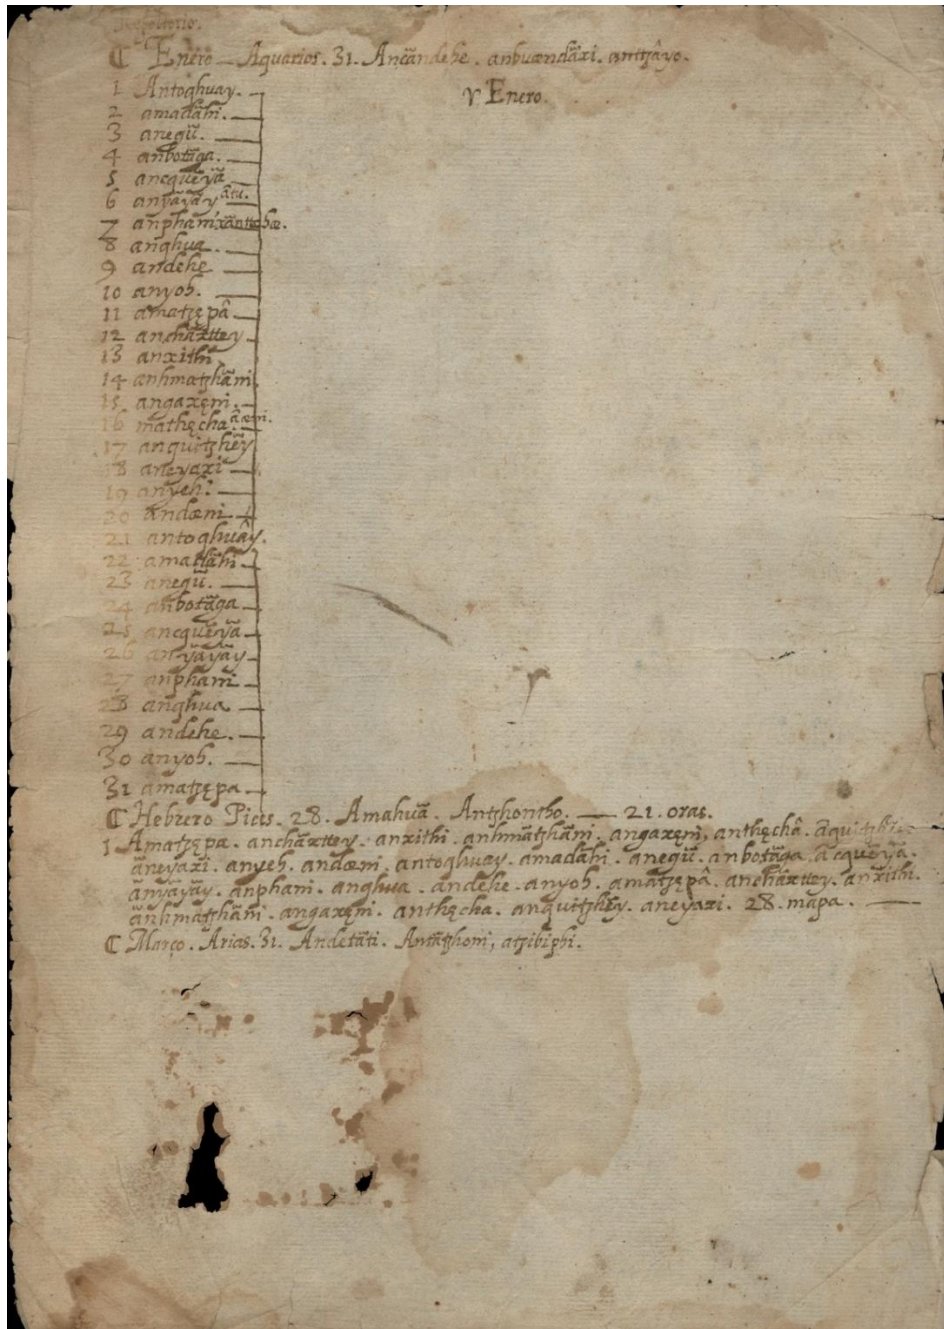 Repertorio.
ℂ Enero — Aquarios. 31. Ancändehe. anbuændäxi. antzâyo.
1 Antoghuay. —
γ Enero.
2 amadâhi. —
3 anegü. —
4 anbotäga. —
5 ancquëyä —
6 anyäyäy âtu. —
7 anphäni xänttohæ.
8 anqhua. —
9 andehe —
10 anyoh. —
11 amatzępâ —
12 anchäxttey
13 anxithi
14 anhmatzhäni.
15 angaxęni. —
16 mathęcha. âæni.
17 anquitzhëy
18 aneyaxi —
19 anyeh: —
20 andæni —
21 antoghuây.
22 amadâhi —
23 anegü. —
24 anbotäga —
25 ancquëyä —
26 anyäyäy —
27 anphäni —
28 anqhua —
29 andehe. —
30 anyoh. —
31 amatzępa —
ℂ Hebrero Picis. 28. Amahuä. Antzhontho. — 21. oras.
1 Amatzępa. anchäxttey. anxithi. anhmätzhäni. angaxęni, anthęchâ.
äneyaxi. anyeh. andæni, antoghuay. amadâhi. anegü. anbotäga. acquëyä.
anyäyäy. anphani. anqhua. andehe. anyoh. amatzępâ. anchäxttey. anxithi.
änhmatzhäni. angaxęni. anthęcha. anquitzhëy. aneyaxi. 28. mapa. —
ℂ Março. Arias. 31. Andetäti. Antätzhoni, atzibiphi.